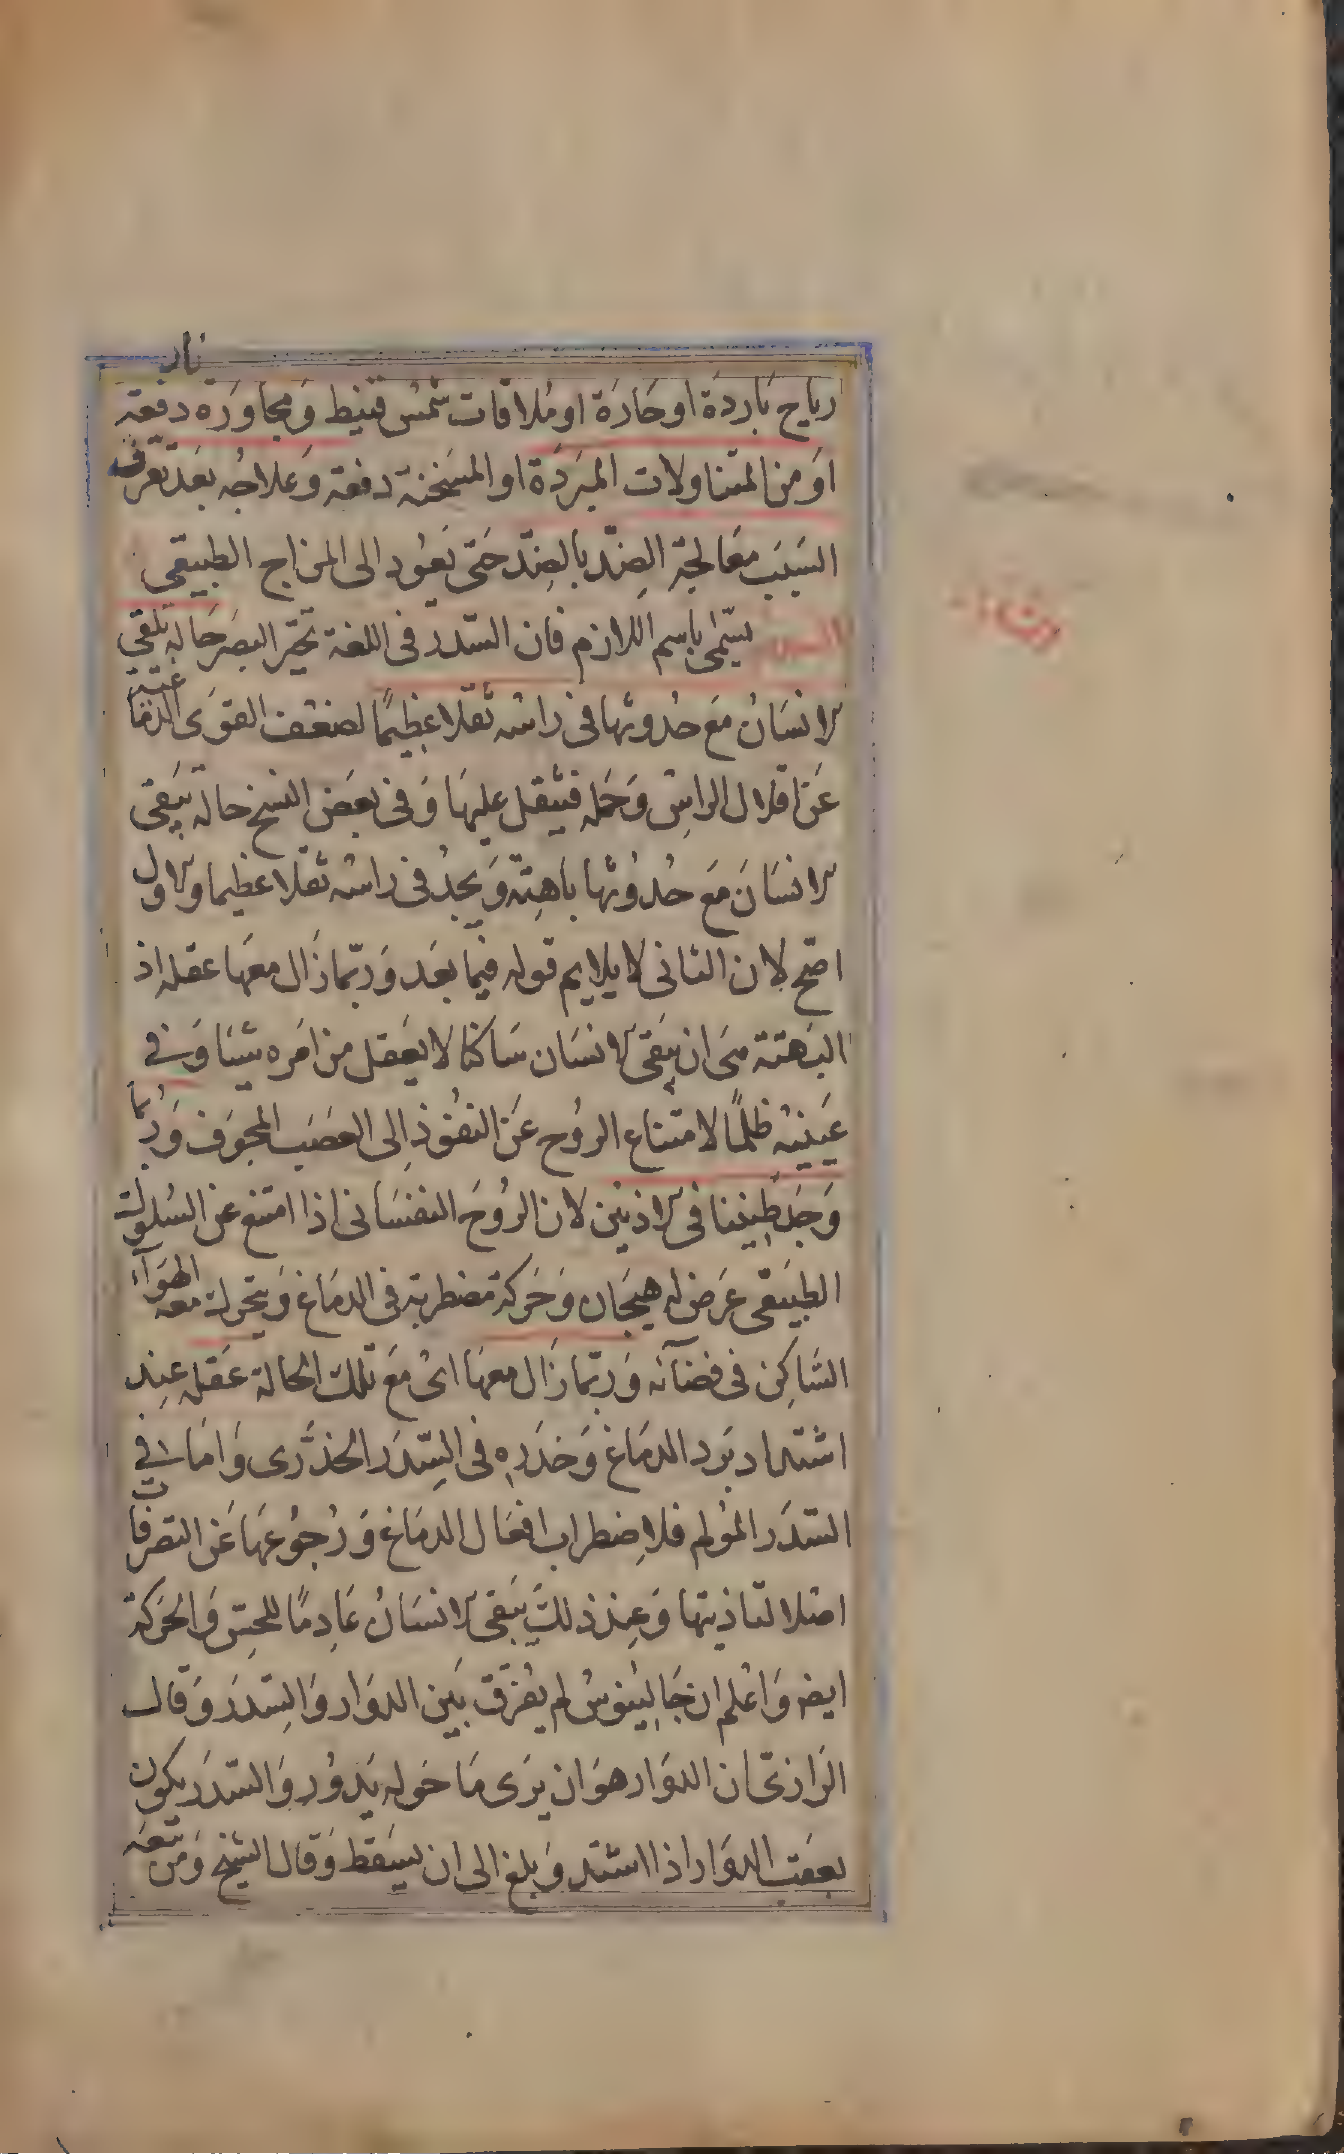 رياح باردة او حارة او ملاقات شمس قيظ ومجاورة نار دفعة
او من المتناولات المبردة او المسخنة دفعة وعلاجه بعد تعرف
السبب معالجة الضد بالضد حتى يعود الى المزاج الطبيعى
السدر يسمى باسم اللازم فان السدر فى اللغة تحير البصر حالة يلقى
الانسان مع حدوثها فى راسه ثقلا عظيما لضعف القوى الدماغية
عن اقلال الراس وحمله فيثقل عليها وفى بعض النسخ حالة يبقى
الانسان مع حدوثها باهتة ويجد فى راسه ثقلا عظيما والاول
اصح لان الثانى لا يلايم قوله فيما بعد وربما زال معها عقله اذ
البهتة هى ان يبقى الانسان ساكنا لا يعقل من امره شيئا وفى
عينيه ظلما لامتناع الروح عن النفوذ الى العصب المجوف وربما
وجد طنينا فى الاذنين لان الروح النفسانى اذا امتنع عن السلوك
الطبيعى عرض له هيجان وحركة مضطربة فى الدماغ ويتحرك معه الهوآء
الساكن فى فضآئه وربما زال معها اى مع تلك الحالة عقله عند
اشتداد برد الدماغ وخدره فى السدر الخدرى واما فى
السدر المولم فلاضطراب افعال الدماغ ورجوعها عن التصرفات
اصلا لتاذيتها وعند ذلك يبقى الانسان عادما للحس والحركة
ايضه واعلم ان جالينوس لم يفرق بين الدوار والسدر وقال
الرازى ان الدوار هو ان يرى ما حوله يدور والسدر يكون
بعقب الدوار اذا اشتد وبلغ الى ان يسقط وقال الشيخ ومن تبعه